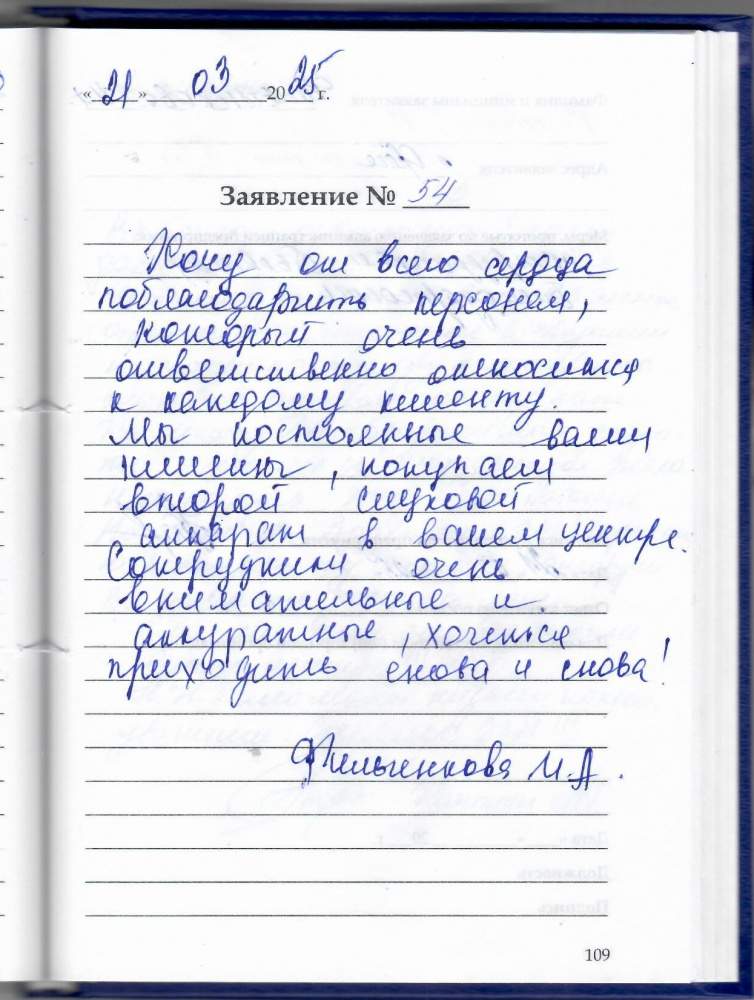 «21» 03 2025 г.
Заявление № 54
Хочу от всего сердца
поблагодарить персонал,
который очень
ответственно относится
к каждому клиенту.
Мы постоянные ваши
клиенты, покупаем
второй слуховой
аппарат в вашем центре.
Сотрудники очень
внимательные и
аккуратные, хочется
приходить снова и снова!
И.А.
109